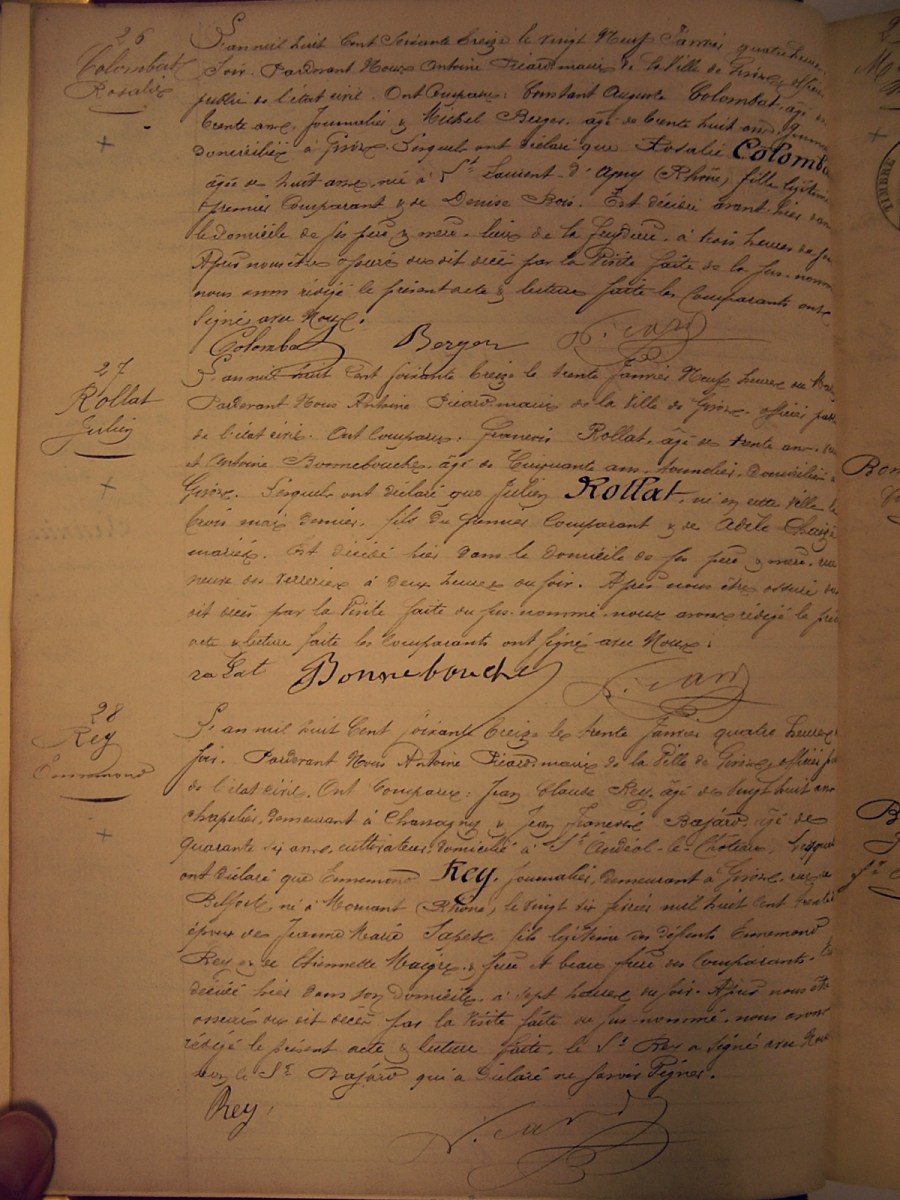 26
Colombat
Rosalie
L'an mil huit Cent Soixante treize le vingt Neuf Janvier quatre heures
Soir. Pardevant Nous Antoine Picard maire de la Ville de Givors officier
public de l'état civil. Ont Comparu: Constant Auguste Colombat, âgé de
trente ans, Journalier & Michel Berger, âgé de trente huit ans,
domiciliés à Givors. Lesquels ont déclaré que Rosalie Colomba
âgée de huit ans, née à St Laurent-d'Agny (Rhône) fille légitime
premier Comparant & de Denise Bois. Est décédée avant-hier dans
le domicile de ses père & mère, lieu de la Freydière, à trois heures du
Après nous être assuré du dit décès par la Visite faite de la sus-nommé
nous avons rédigé le présent acte & lecture faite les Comparants ont
Signé avec Nous.
Colombat Berger Picard
27
Rollat
Julien
L'an mil huit Cent soixante treize le trente Janvier Neuf heures du
Pardevant Nous Antoine Picard maire de la Ville de Givors, officier
de l'état civil. Ont Comparu, François Rollat, âgé de trente ans,
et Antoine Bonnebouche, âgé de Cinquante ans, domiciliés à
Givors. Lesquels ont déclaré que Julien Rollat, né en cette Ville le
trois mai dernier, fils du premier Comparant & de Adèle
mariés. Est décédé hier dans le domicile de ses père & mère, rue
neuve des Verreries à deux heures du soir. Après nous être assuré du
dit décès par la Visite faite du sus-nommé nous avons rédigé le
acte & lecture faite les Comparants ont signé avec Nous.
Bonnebouche Picard
28
Rey
Ennemond
L'an mil huit Cent soixante treize le trente Janvier quatre heures
soir. Pardevant Nous Antoine Picard maire de la Ville de Givors, officier
de l'état civil. Ont Comparu, Jean Claude Rey, âgé de vingt huit ans
chapelier, demeurant à Chassagny & Jean Bajard, âgé de
quarante six ans cultivateur, domicilié à St Andéol-le-Château, Lesquels
ont déclaré que Ennemond Rey, journalier, demeurant à Givors, rue de
Belfort, né à Mornant (Rhône), le vingt six février mil huit Cent trente
époux de Jeanne Marie fils légitime des défunts Ennemond
Rey & de Etiennette Maigre, & frère et beau frère des Comparants. Est
décédé hier dans son domicile, à sept heures du soir. Après nous être
assuré du dit décès par la Visite faite du sus-nommé, nous avons
rédigé le présent acte & lecture faite, le Sr Rey a signé avec Nous
le Sr Bajard qui a déclaré ne savoir Signer.
Rey
Picard
TIMBRE